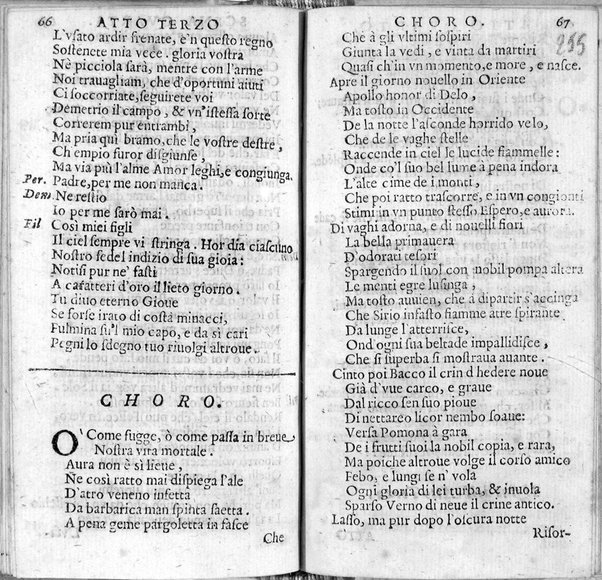 66 ATTO TERZO
L'vsato ardir frenate, e'n questo regno
Sostenete mia vece. gloria vostra
Nè picciola sarà, mentre con l'arme
Noi trauagliam, che d'oportuni aiuti
Ci soccorriate, seguirete voi
Demetrio il campo, & vn'istessa sorte
Correrem pur entrambi,
Ma pria quì bramo, che le vostre destre,
Ch'empio furor disgiunse,
Ma via più l'alme Amor leghi, e congiunga.
Per. Padre, per me non manca.
Dem. Ne restio
Io per me sarò mai.
Fil Così miei figli
Il ciel sempre vi stringa. Hor dia ciascuno
Nostro fedel indizio di sua gioia:
Notisi pur ne' fasti
A caratteri d'oro il lieto giorno.
Tu diuo eterno Gioue
Se forse irato di costà minacci,
Fulmina su'l mio capo, e da sì cari
Pegni lo sdegno tuo riuolgi altroue.
CHORO.
O' Come fugge, ò come passa in breue
Nostra vita mortale.
Aura non è sì lieue,
Ne così ratto mai dispiega l'ale
D'atro veneno infetta
Da barbarica man spinta saetta.
A pena geme pargoletta in fasce
Che
CHORO. 67
255
Che à gli vltimi sospiri
Giunta la vedi, e vinta da martiri
Quasi ch'in vn momento, e more, e nasce.
Apre il giorno nouello in Oriente
Apollo honor di Delo,
Ma tosto in Occidente
De la notte l'asconde horrido velo,
Che de le vaghe stelle
Raccende in ciel le lucide fiammelle:
Onde co'l suo bel lume à pena indora
L'alte cime de i monti,
Che poi ratto trascorre, e in vn congionti
Stimi in vn punto stesso Espero, e aurora.
Di vaghi adorna, e di nouelli fiori
La bella primauera
D'odorati tesori
Spargendo il suol con nobil pompa altera
Le menti egre lusinga,
Ma tosto auuien, che à dipartir s'accinga
Che Sirio infasto fiamme atre spirante
Da lunge l'atterrisce,
Ond'ogni sua beltade impallidisce,
Che sì superba si mostraua auante.
Cinto poi Bacco il crin d'hedere noue
Già d'vue carco, e graue
Dal ricco sen suo pioue
Di nettareo licor nembo soaue:
Versa Pomona à gara
De i frutti suoi la nobil copia, e rara,
Ma poiche altroue volge il corso amico
Febo, e lungi se n' vola
Ogni gloria di lei turba, & inuola
Sparso Verno di neue il crine antico.
Lasso, ma pur dopo l'oscura notte
Risor-